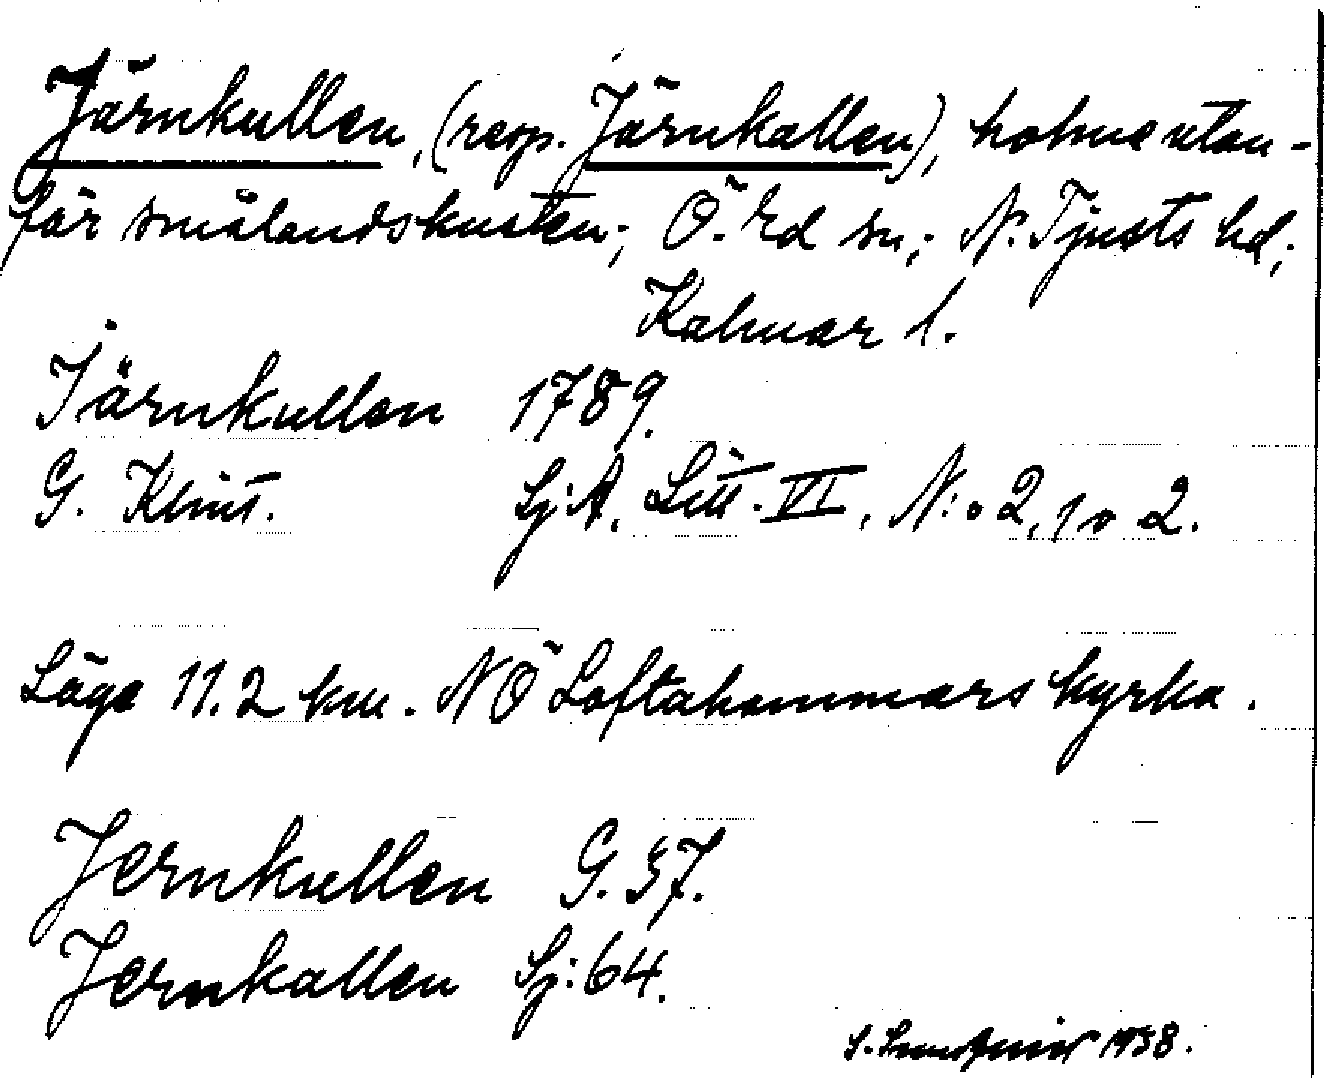 Järnkullen, (resp. Järnkallen), holme utan-
för smålandskusten; Ö. Ed sn; N. Tjusts hd;
Kalmar l.
Järnkullen 1789.
G. Klint. Sj:A. Litt. VI, N:o 2, 1 o 2.
Läge 11.2 km. NÖ Loftahammars kyrka.
Jernkullen G. 57.
Jernkallen Sj: 64.
S. 1938.